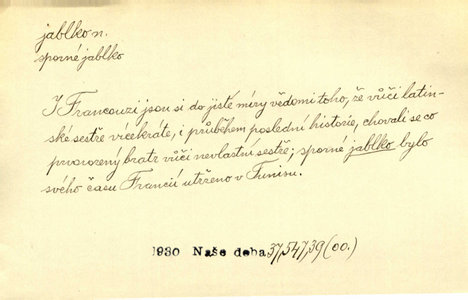 jablko n.
sporné jablko
I Francouzi jsou si do jisté míry vědomi toho, že vůči latin-
ské sestře vícekráte, i průběhem poslední historie, chovali se co
prvorozený bratr vůči nevlastní sestře; sporné jablko bylo
svého času Francií utrženo v Tunisu.
1930 Naše doba 37,547,39 (00.)